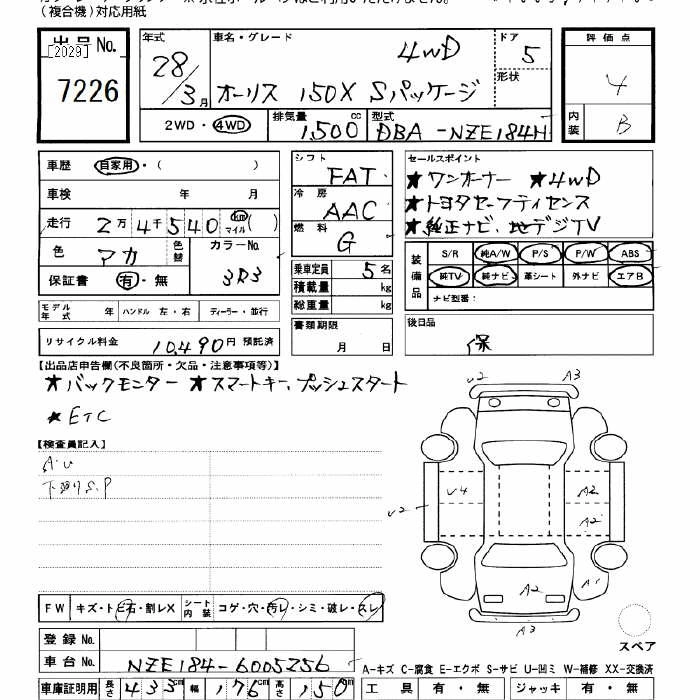 (複合機)対応用紙
出品No. [2029] 7226
年式 28/3月
車名・グレード 4WD
オーリス 150X Sパッケージ
ドア 5
形状
評価点 4
内装 B
2WD・4WD
排気量 1,500 cc
型式 DBA-NZE184H
車歴 自家用・( )
車検 年 月
走行 2万4千540 km マイル ( )
色 アカ 色替 カラーNo. 3R3
保証書 有・無
モデル年式 年 ハンドル 左・右 ディーラー・並行
リサイクル料金 10,490円 預託済
シフト FAT
冷房 AAC
燃料 G
乗車定員 5名
積載量 kg
総重量 kg
書類期限
月 日
セールスポイント
★ワンオーナー ★4WD
★トヨタセーフティセンス
★純正ナビ、地デジTV
装備品 S/R 純A/W P/S P/W ABS
純TV 純ナビ 革シート 外ナビ エアB
ナビ型番:
後日品
保
【出品店申告欄(不良箇所・欠品・注意事項等)】
★バックモニター ★スマートキー、プッシュスタート
★ETC
【検査員記入】
A・U
下廻りS、P
U2 A3
U4 A2
U2 A2
A2 A1
A3
スペア
FW キズ・トビ石・割レX シート内装 コゲ・穴・汚レ・シミ・破レ・スレ
登録No.
車台No. NZE184-6005256
A-キズ C-腐食 E-エクボ S-サビ U-凹ミ W-補修 XX-交換済
車庫証明用 長さ 433cm 幅 176cm 高さ 150cm
工具 有・無 ジャッキ 有・無